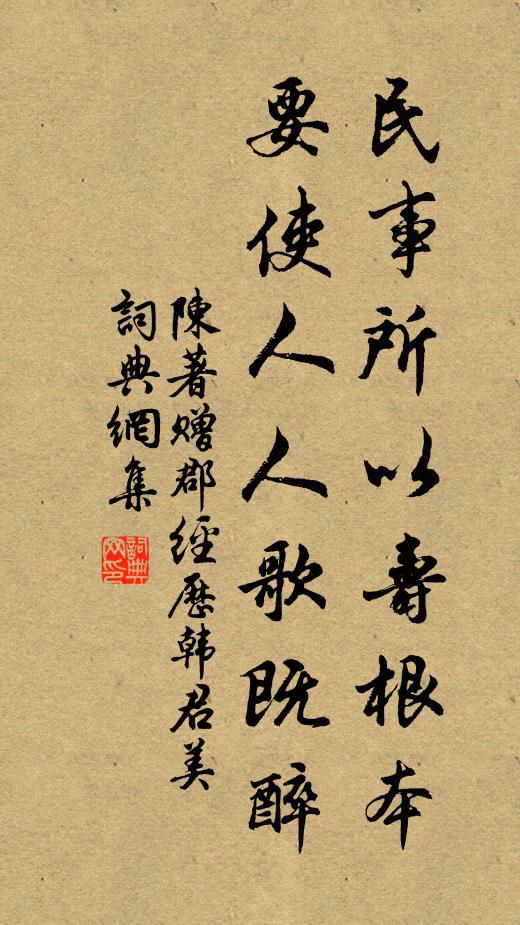 民事所以壽根本
要使人人歌既醉
陳著贈郡經歷韩君美
詞典網集
詞典网印